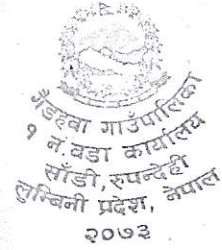 गैडहवा गाउँपालिका
१ नं. वडा कार्यालय
साँडी, रुपन्देही
लुम्बिनी प्रदेश, नेपाल
२०७३